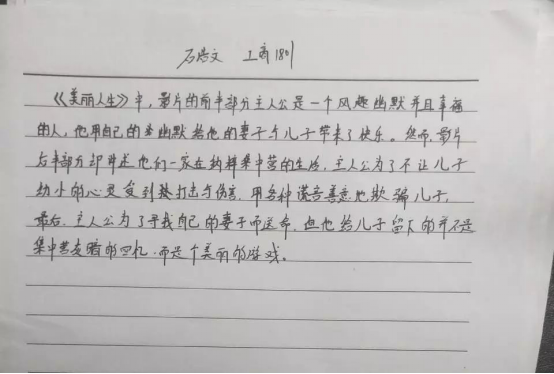 石浩文 工商1801
《美丽人生》中，影片的前半部分主人公是一个风趣幽默并且幸福
的人，他用自己的幽默给他的妻子与儿子带来了快乐。然而，影片
后半部分却讲述他们一家在纳粹集中营的生活，主人公为了不让儿子
幼小的心灵受到打击与伤害，用各种谎言善意地欺骗儿子，
最后，主人公为了寻找自己的妻子而送命，但他给儿子留下的并不是
集中营灰暗的回忆，而是个美丽的游戏。